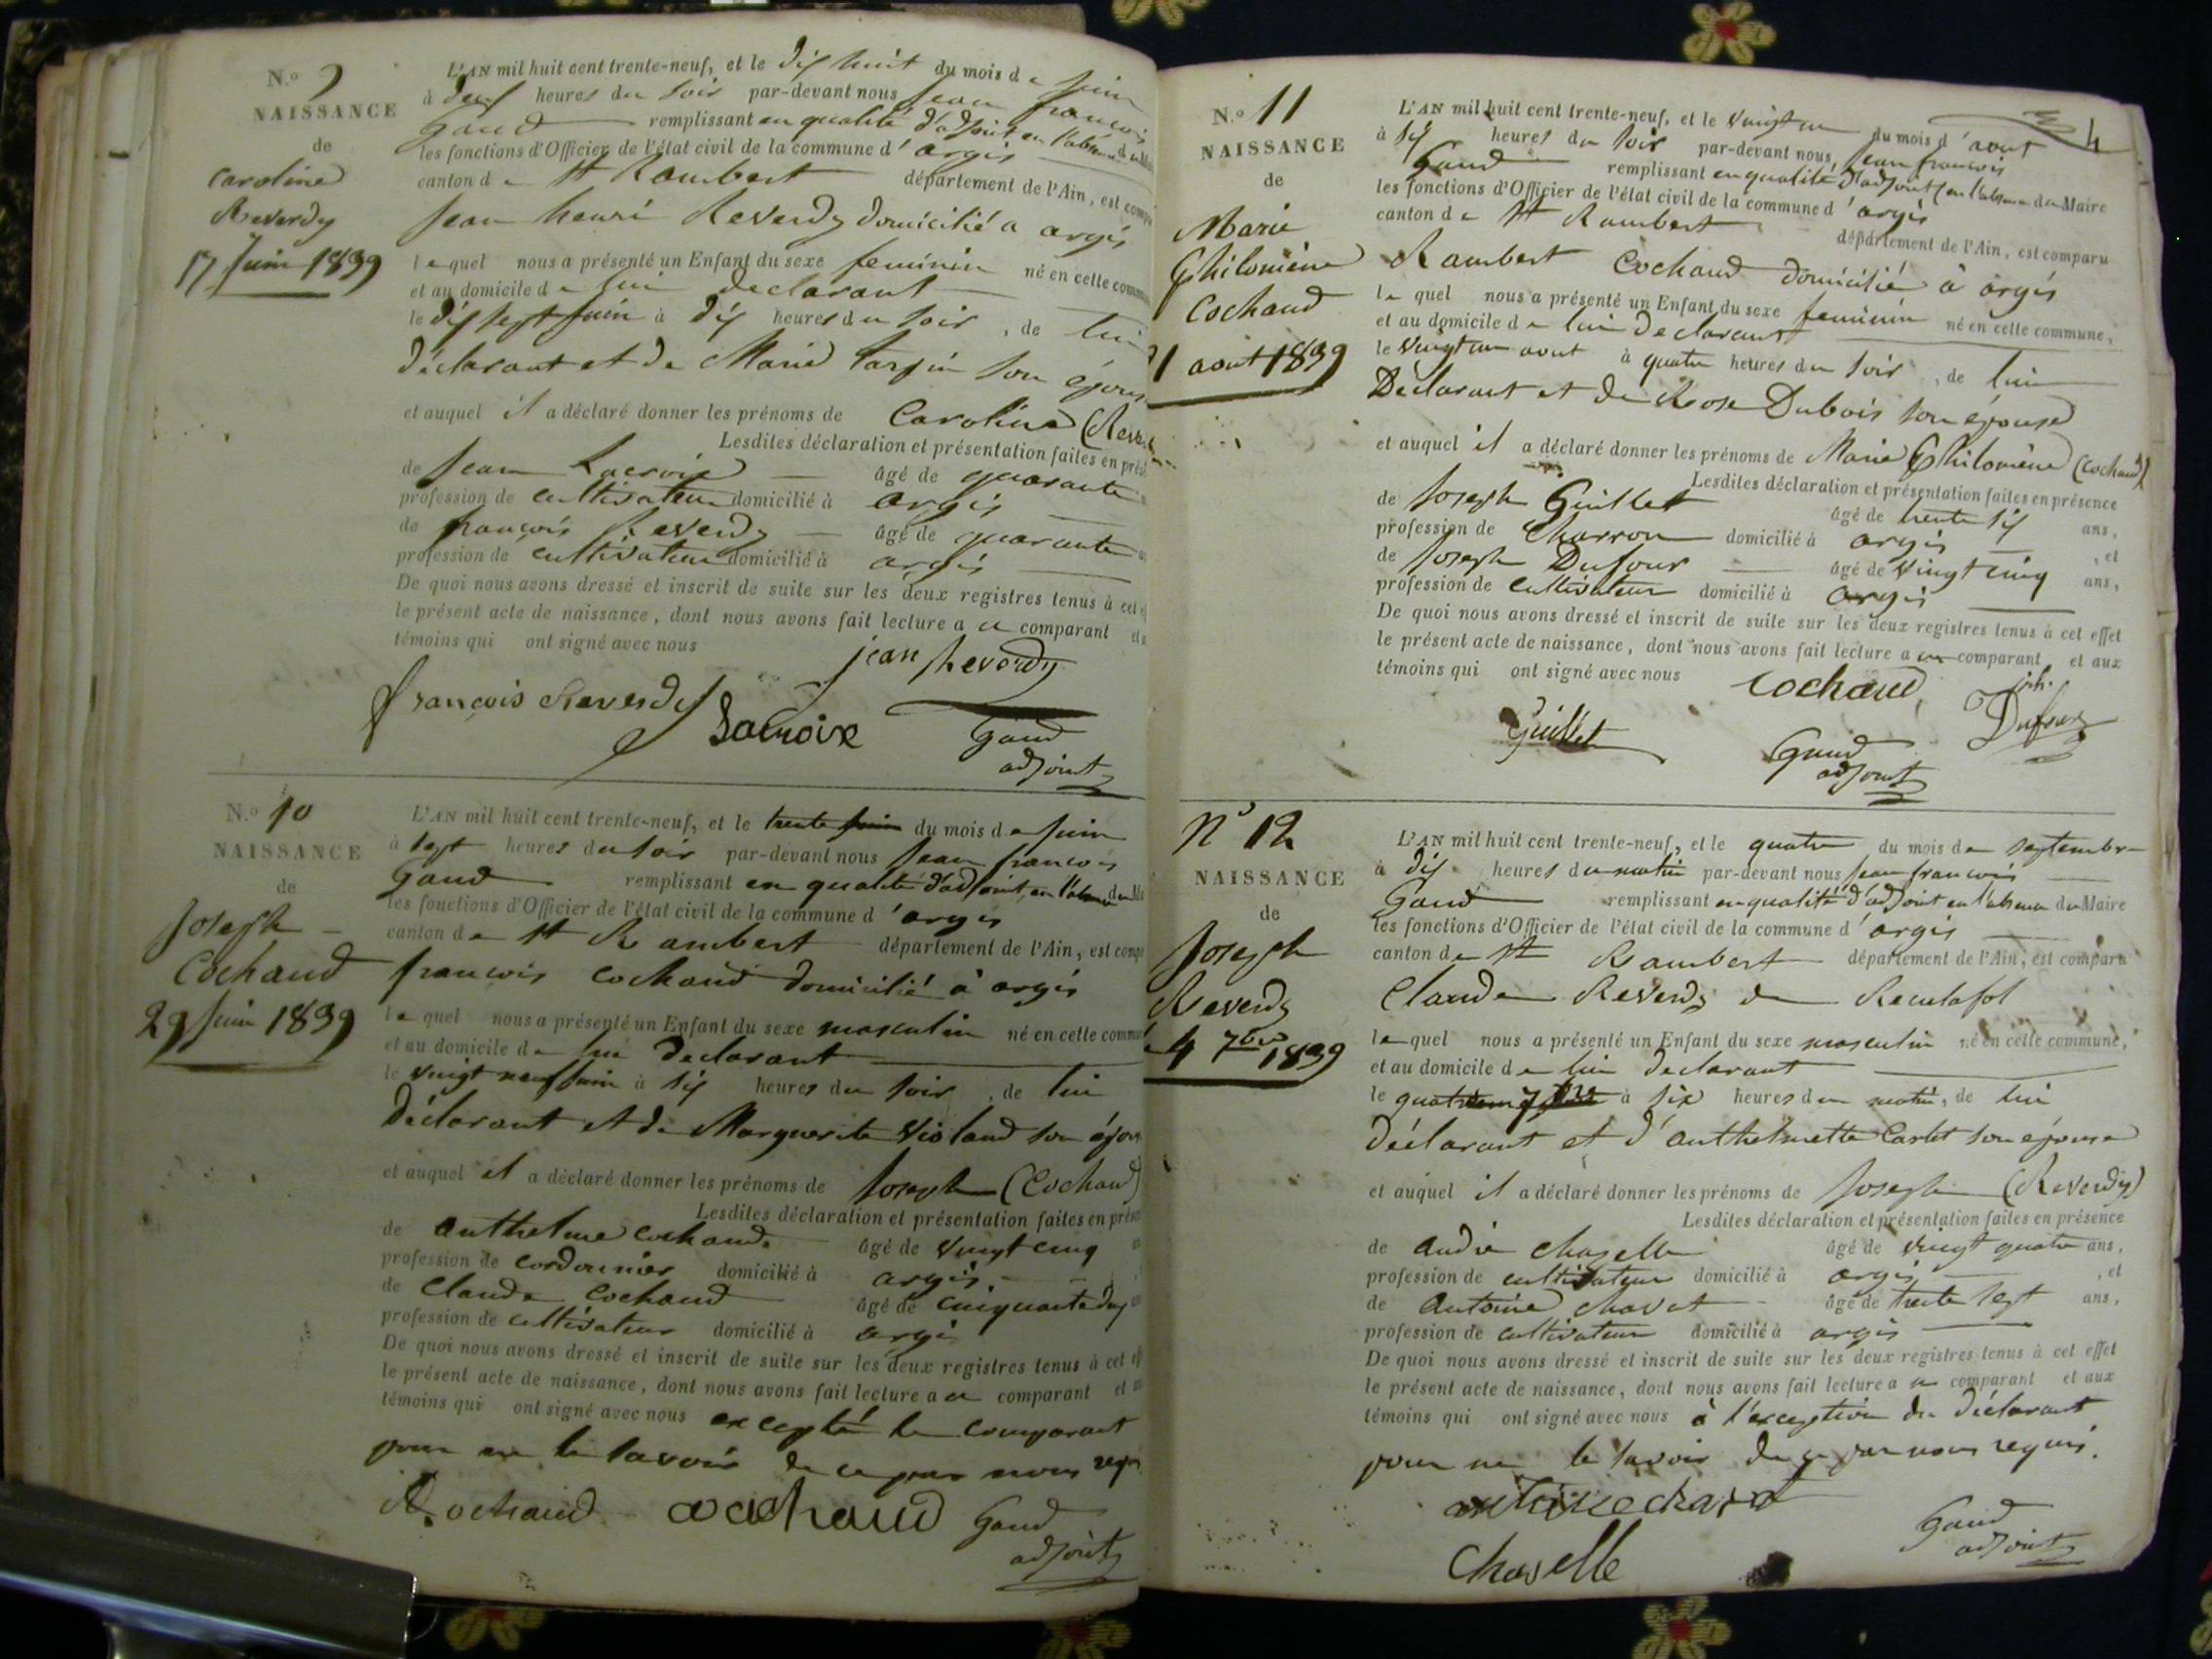 N.o 9
NAISSANCE
de
Caroline
Reverdy
17 Juin 1839
L'AN mil huit cent trente-neuf, et le dix huit du mois de Juin
à deux heures du soir par-devant nous Jean françois
Gaud remplissant en qualité d'adjoint en l'absence du
les fonctions d'Officier de l'état civil de la commune d'argis
canton de St Rambert département de l'Ain, est
Jean henri Reverdy domicilié a argis
lequel nous a présenté un Enfant du sexe feminin né en cette
et au domicile de lui declarant
le dix sept Juin à dix heures du soir, de lui
déclarant et de Marie Tarpin son
et auquel il a déclaré donner les prénoms de Caroline
Lesdites déclaration et présentation faites en
de Jean Lacroix âgé de quarante
profession de cultivateur domicilié à argis
de françois Reverdy âgé de quarante
profession de cultivateur domicilié à argis
De quoi nous avons dressé et inscrit de suite sur les deux registres tenus à cet
le présent acte de naissance, dont nous avons fait lecture a ce comparant
témoins qui ont signé avec nous
jean Reverdy
françois Reverdy Lacroix Gaud
adjoint
N.o 10
NAISSANCE
de
Joseph
Cochaud
29 Juin 1839
L'AN mil huit cent trente-neuf, et le trente Juin du mois de Juin
à sept heures du soir par-devant nous Jean françois
Gaud remplissant en qualité d'adjoint, en l'absence du
les fonctions d'Officier de l'état civil de la commune d'argis
canton de St Rambert département de l'Ain, est
françois Cochaud domicilié à argis
lequel nous a présenté un Enfant du sexe masculin né en cette
et au domicile de lui declarant
le vingt neuf Juin à six heures du soir, de lui
déclarant et de Marguerite Violand son
et auquel il a déclaré donner les prénoms de Joseph (Cochaud)
Lesdites déclaration et présentation faites en
de anthelme Cochaud âgé de vingt cinq
profession de cordonnier domicilié à argis
de Claude Cochaud âgé de cinquante
profession de cultivateur domicilié à argis
De quoi nous avons dressé et inscrit de suite sur les deux registres tenus à cet
le présent acte de naissance, dont nous avons fait lecture a ce comparant et
témoins qui ont signé avec nous excepté le comparant
pour ne le savoir de ce par nous
Cochaud Cochaud Gaud
adjoint
4
N.o 11
NAISSANCE
de
Marie
Philomène
Cochaud
1 août 1839
L'AN mil huit cent trente-neuf, et le vingt un du mois d'aout
à six heures du soir par-devant nous, Jean francois
Gaud remplissant en qualité d'adjoint en l'absence du Maire
les fonctions d'Officier de l'état civil de la commune d'argis
canton de St Rambert département de l'Ain, est comparu
Rambert Cochaud domicilié à argis
lequel nous a présenté un Enfant du sexe feminin né en cette commune,
et au domicile de lui Declarant
le vingt un aout à quatre heures du soir, de lui
Déclarant et de Rose Dubois son épouse
et auquel il a déclaré donner les prénoms de Marie Philomène (Cochaud)
Lesdites déclaration et présentation faites en présence
de Joseph Guillet âgé de trente six ans,
profession de Charron domicilié à argis, et
de Joseph Dufour âgé de vingt cinq ans,
profession de cultivateur domicilié à argis
De quoi nous avons dressé et inscrit de suite sur les deux registres tenus à cet effet
le présent acte de naissance, dont nous avons fait lecture a ce comparant et aux
témoins qui ont signé avec nous
Cochaud
Guillet Gaud Dufour
adjoint
N° 12
NAISSANCE
de
Joseph
Reverdy
4 7bre 1839
L'AN mil huit cent trente-neuf, et le quatre du mois de septembre
à dix heures du matin par-devant nous Jean francois
Gaud remplissant en qualité d'adjoint en l'absence du Maire
les fonctions d'Officier de l'état civil de la commune d'argis
canton de St Rambert département de l'Ain, est comparu
Claude Reverdy de Reculafol
lequel nous a présenté un Enfant du sexe masculin né en cette commune,
et au domicile de lui declarant
le quatre à six heures du matin, de lui
Déclarant et d'anthelmette Carlet son épouse
et auquel il a déclaré donner les prénoms de Joseph (Reverdy)
Lesdites déclaration et présentation faites en présence
de André Chapelle âgé de vingt quatre ans,
profession de cultivateur domicilié à argis, et
de Antoine Chavet âgé de trente sept ans,
profession de cultivateur domicilié à argis
De quoi nous avons dressé et inscrit de suite sur les deux registres tenus à cet effet
le présent acte de naissance, dont nous avons fait lecture a ce comparant et aux
témoins qui ont signé avec nous à l'exception du déclarant
pour ne le savoir de ce par nous requis.
antoine chavet
Gaud
adjoint
Chapelle